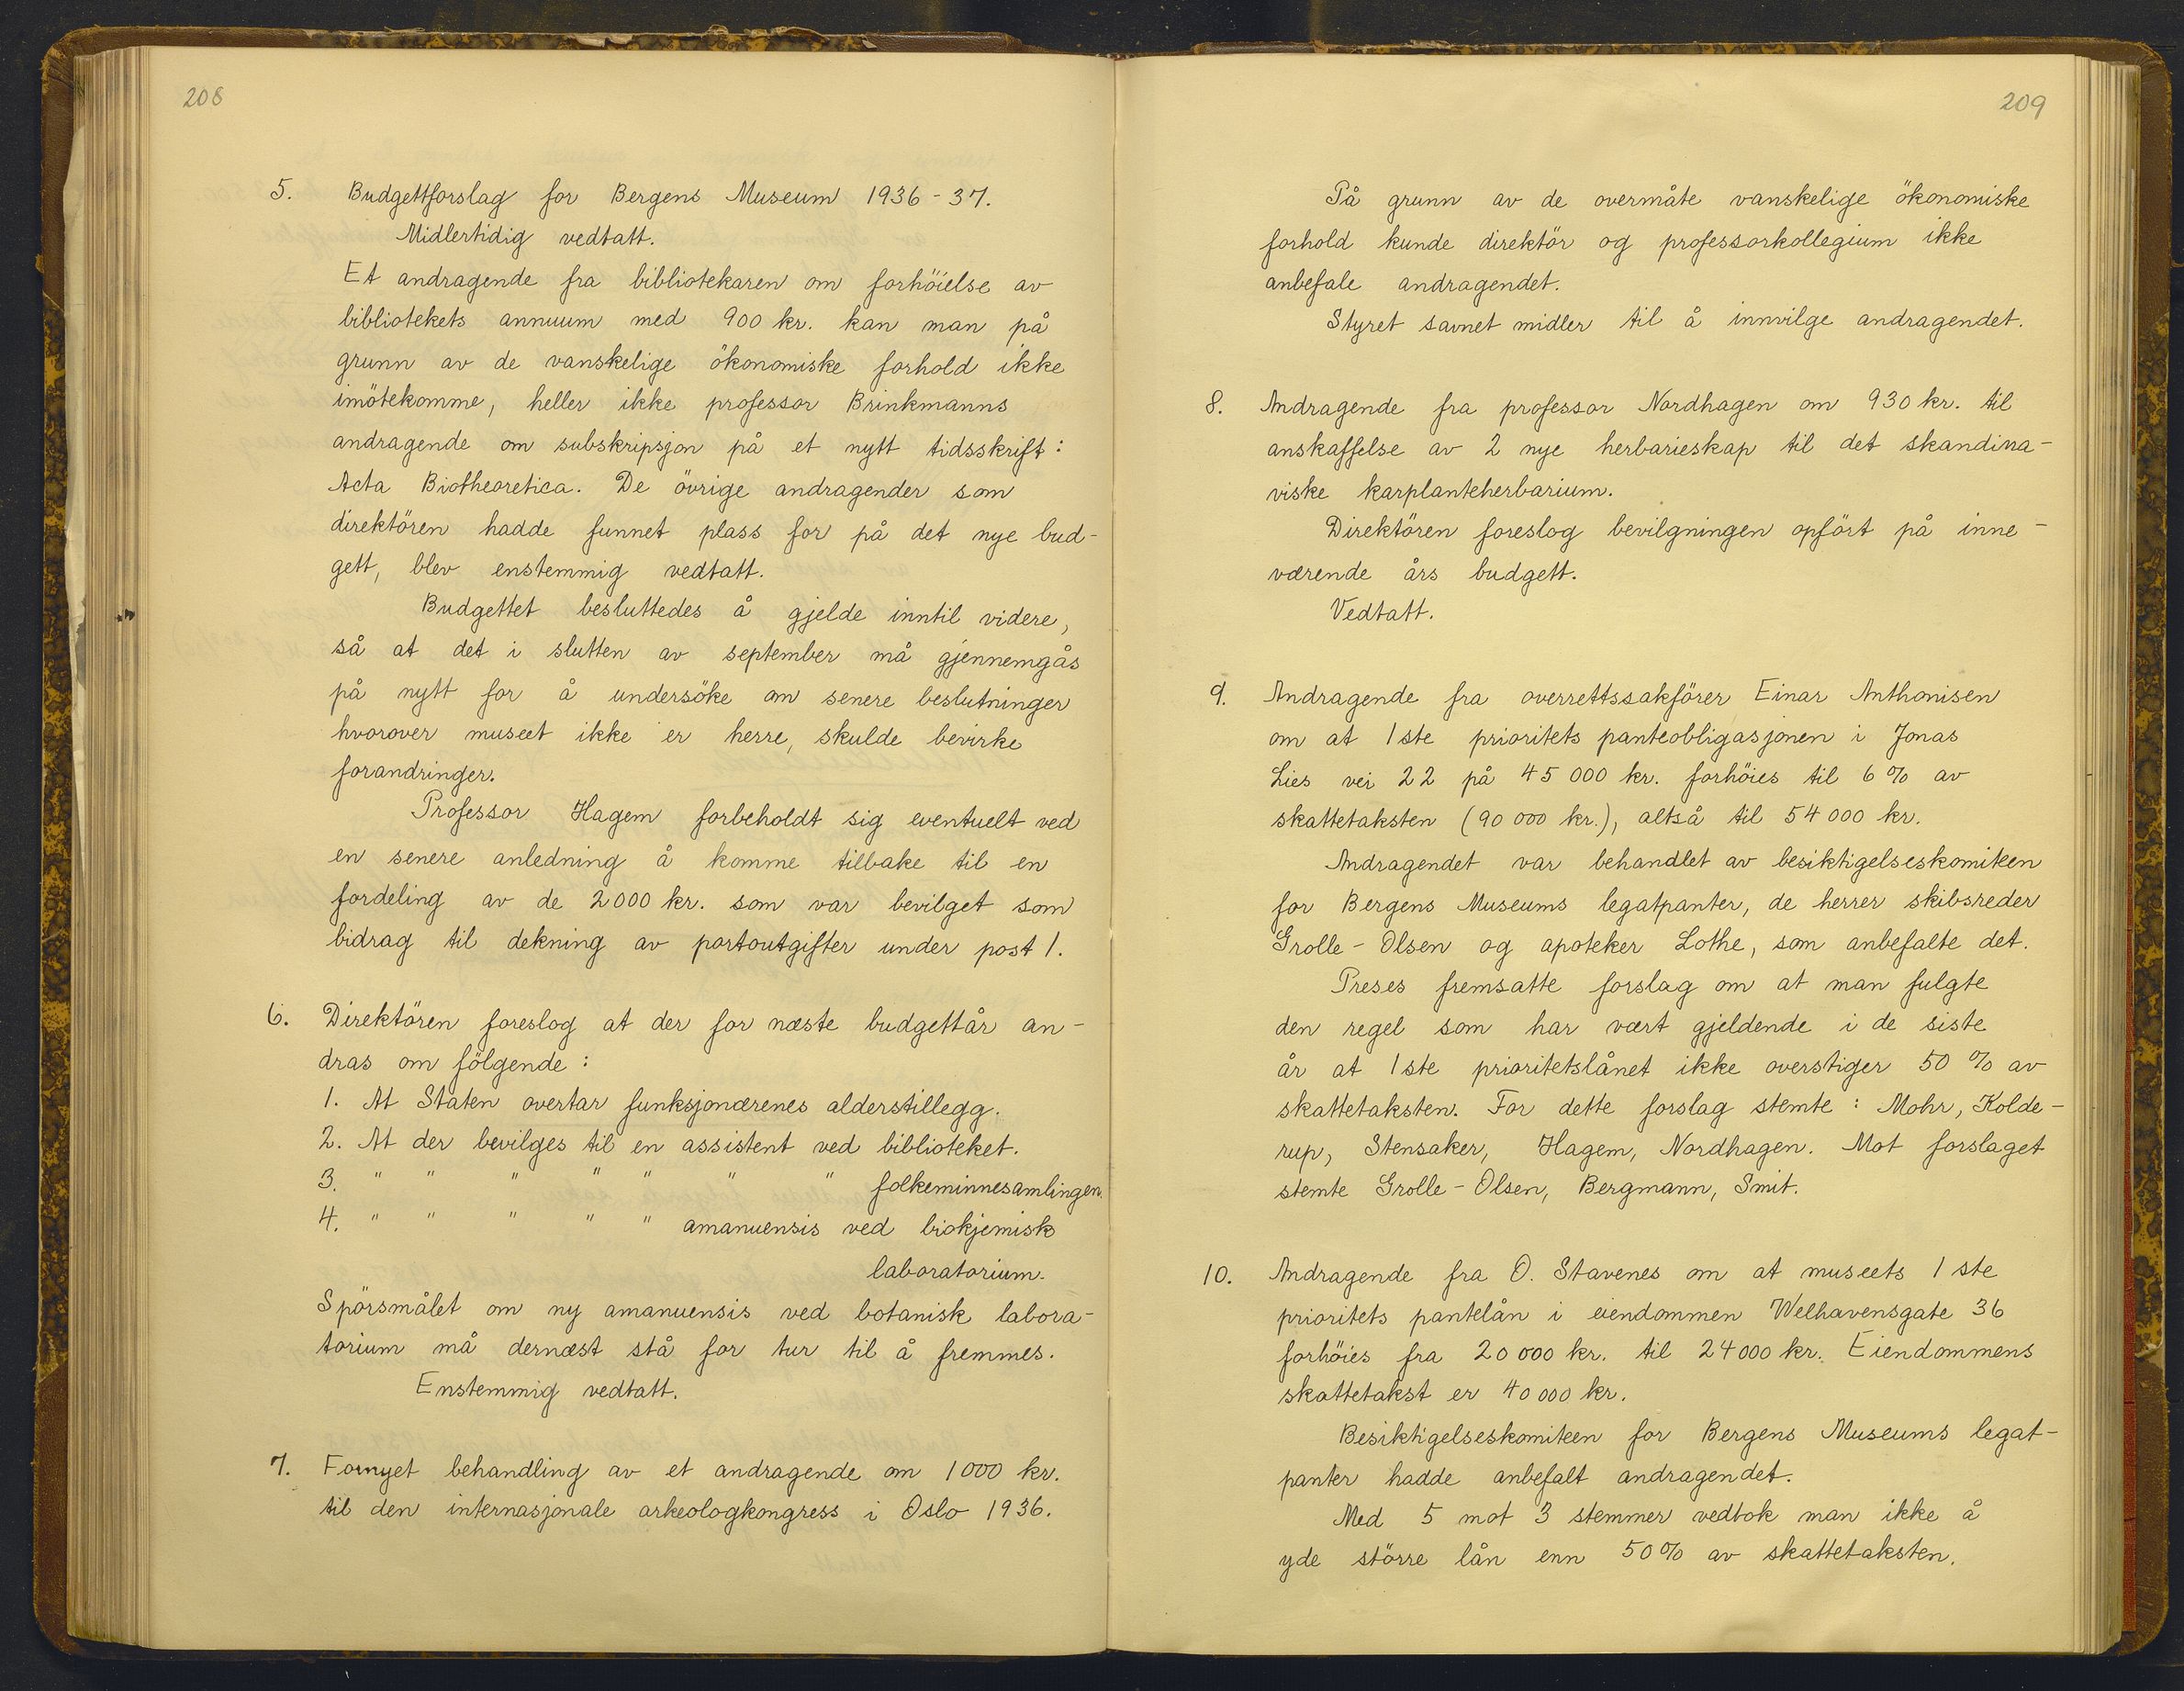 208
5. Budgettforslag for Bergens Museum 1936-37.
Midlertidig vedtatt.
Et andragende fra bibliotekaren om forhöielse av
bibliotekets annuum med 900 kr. kan man på
grunn av de vanskelige ökonomiske forhold ikke
imötekomme, heller ikke professor Brinkmanns
andragende om subskripsjon på et nytt tidsskrift:
Acta Biotheoretica. De övrige andragender som
direktören hadde funnet plass for på det nye bud-
gett, blev enstemmig vedtatt.
Budgettet besluttedes å gjelde inntil videre,
så at det i slutten av september må gjennemgås
på nytt for å undersöke om senere beslutninger
hvorover museet ikke er herre, skulde bevirke
forandringer.
Professor Hagem forbeholdt sig eventuelt ved
en senere anledning å komme tilbake til en
fordeling av de 2000 kr. som var bevilget som
bidrag til dekning av portoutgifter under post 1.
6. Direktören foreslog at der for næste budgettår an-
dras om fölgende:
1. At Staten overtar funksjonærenes alderstillegg.
2. At der bevilges til en assistent ved biblioteket.
3. " " " " " " " folkeminnesamlingen.
4. " " " " " amanuensis ved biokjemisk
laboratorium.
Spörsmålet om ny amanuensis ved botanisk labora-
torium må dernæst stå for tur til å fremmes.
Enstemmig vedtatt.
7. Fornyet behandling av et andragende om 1000 kr.
til den internasjonale arkeologkongress i Oslo 1936.
209
På grunn av de overmåte vanskelige ökonomiske
forhold kunde direktör og professorkollegium ikke
anbefale andragendet.
Styret savnet midler til å innvilge andragendet.
8. Andragende fra professor Nordhagen om 930 kr. til
anskaffelse av 2 nye herbarieskap til det skandina-
viske karplanteherbarium.
Direktören foreslog bevilgningen opfört på inne-
værende års budgett.
Vedtatt.
9. Andragende fra overrettssakförer Einar Anthonisen
om at 1ste prioritets panteobligasjonen i Jonas
Lies vei 22 på 45 000 kr. forhöies til 6% av
skattetaksten (90 000 kr.), altså til 54 000 kr.
Andragendet var behandlet av besiktigelseskomiteen
for Bergens Museums legatpanter, de herrer skibsreder
Grolle-Olsen og apoteker Lothe, som anbefalte det.
Preses fremsatte forslag om at man fulgte
den regel som har vært gjeldende i de siste
år at 1ste prioritetslånet ikke overstiger 50 % av
skattetaksten. For dette forslag stemte: Mohr, Kolde-
rup, Stensaker, Hagem, Nordhagen. Mot forslaget
stemte Grolle-Olsen, Bergmann, Smit.
10. Andragende fra O. Stavenes om at museets 1 ste
prioritets pantelån i eiendommen Welhavensgate 36
forhöies fra 20 000 kr. til 24 000 kr. Eiendommens
skattetakst er 40 000 kr.
Besiktigelseskomiteen for Bergens Museums legat-
panter hadde anbefalt andragendet.
Med 5 mot 3 stemmer vedtok man ikke å
yde större lån enn 50% av skattetaksten.